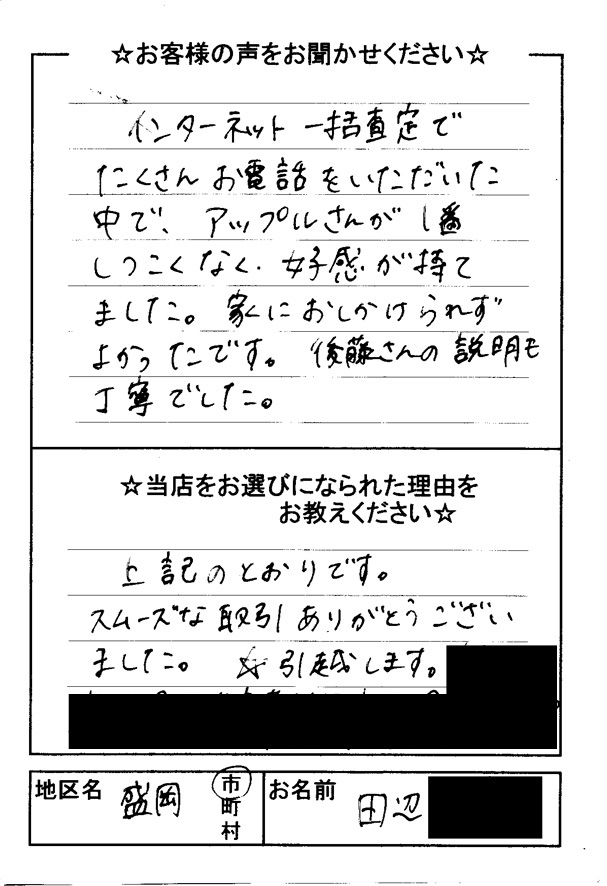 ☆お客様の声をお聞かせください☆
インターネット一括査定で
たくさんお電話をいただいた
中で、アップルさんが1番
しつこくなく、好感が持て
ました。家におしかけられず
よかったです。後藤さんの説明も
丁寧でした。
☆当店をお選びになられた理由を
お教えください☆
上記のとおりです。
スムーズな取引ありがとうござい
ました。 ☆引越します。
地区名 盛岡 市町村 お名前 田辺